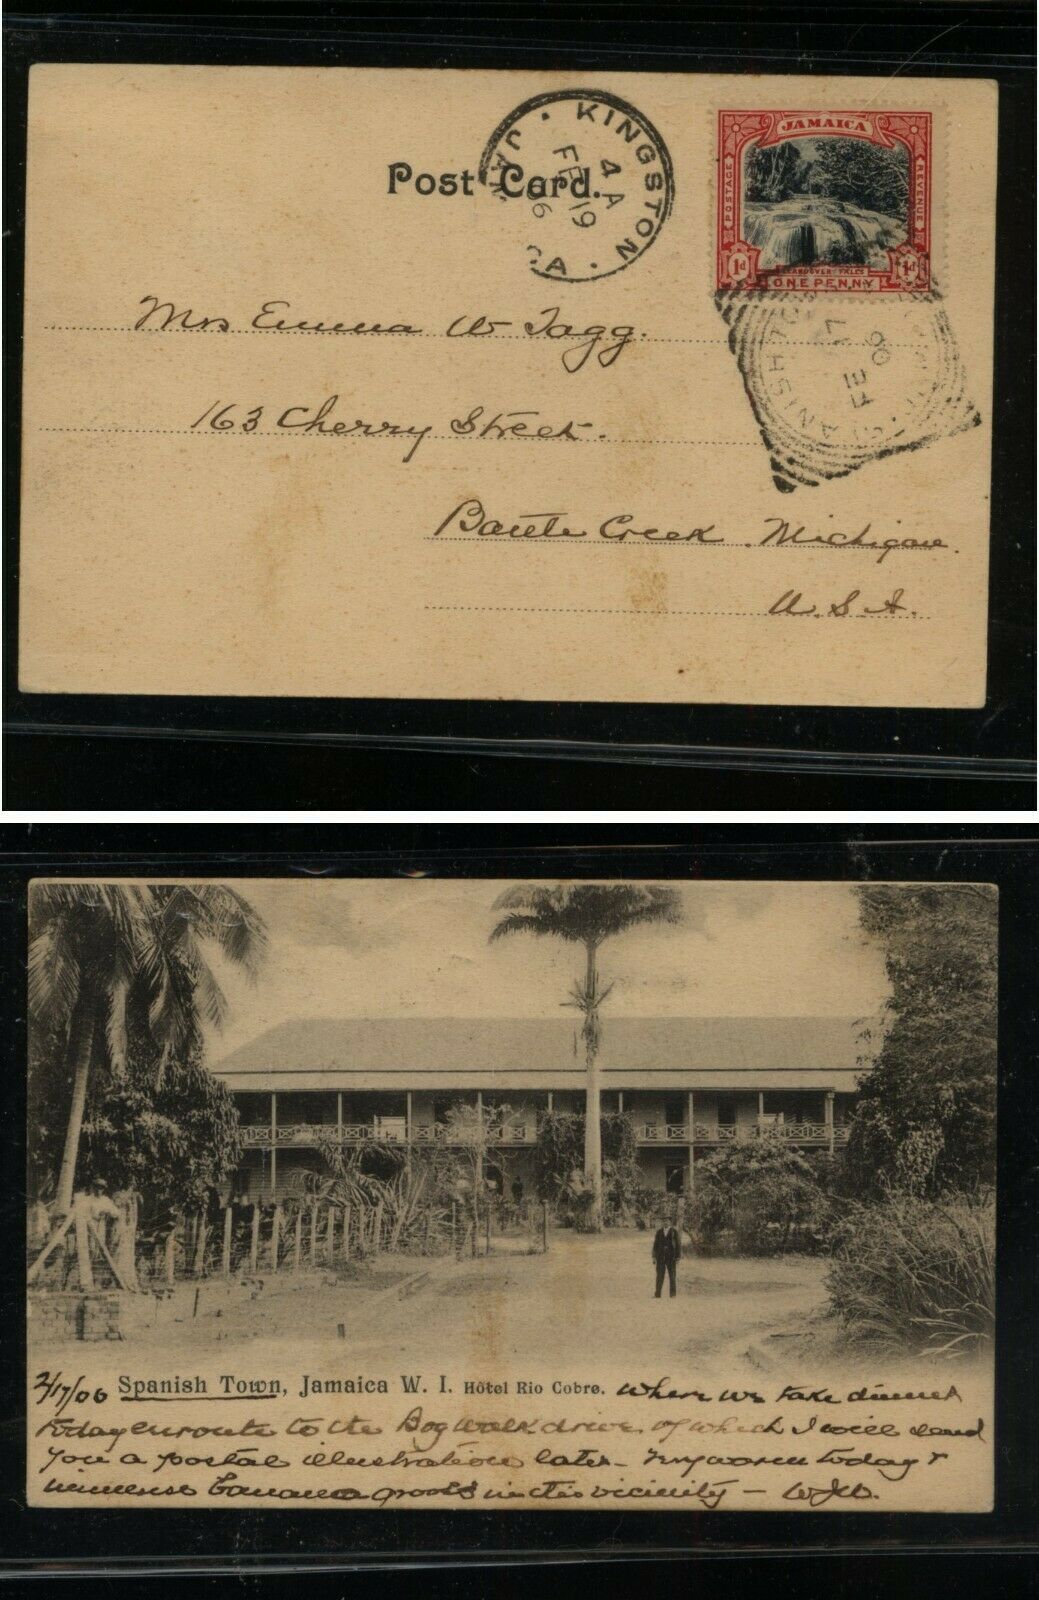 JAMAICA
POSTAGE
REVENUE
1d
LLANDOVER FALLS
1d
ONE PENNY
KINGSTON
4 A
FE 19
06
JAM CA
Post Card.
FE 17
06
Mrs Emma W Tagg.
163 Cherry Street.
Battle Creek. Michigan.
U.S.A.
2/17/06 Spanish Town, Jamaica W. I. Hôtel Rio Cobre. Where we take dinner
today enroute to the Bog Walk drive of which I will send
you a postal illustration later - Very warm today &
immense banana groves in this vicinity -